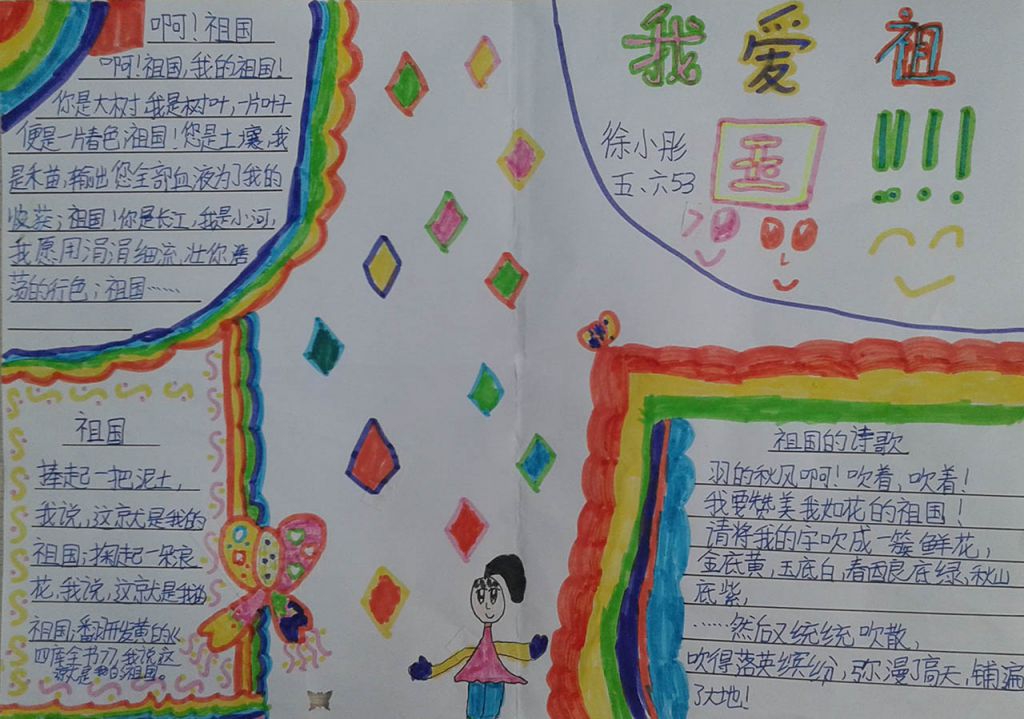 啊！祖国
啊！祖国，我的祖国！
你是大树，我是树叶，一片叶子
便是一片春色；祖国！您是土壤，我
是禾苗，输出您全部血液为了我的
收获；祖国！你是长江，我是小河，
我愿用涓涓细流，壮你浩
荡的行色；祖国……
祖国
捧起一把泥土，
我说，这就是我的
祖国；掬起一朵浪
花，我说，这就是我的
祖国；翻开发黄的《
四库全书》，我说这
就是我的祖国。
我爱祖
国!!!
徐小彤
五、六53
祖国的诗歌
羽的秋风啊！吹着，吹着！
我要赞美我如花的祖国！
请将我的字吹成一簇鲜花，
金底黄，玉底白，春底绿，秋山
底紫，
……然后又统统吹散，
吹得落英缤纷，弥漫了高天，铺遍
了大地！